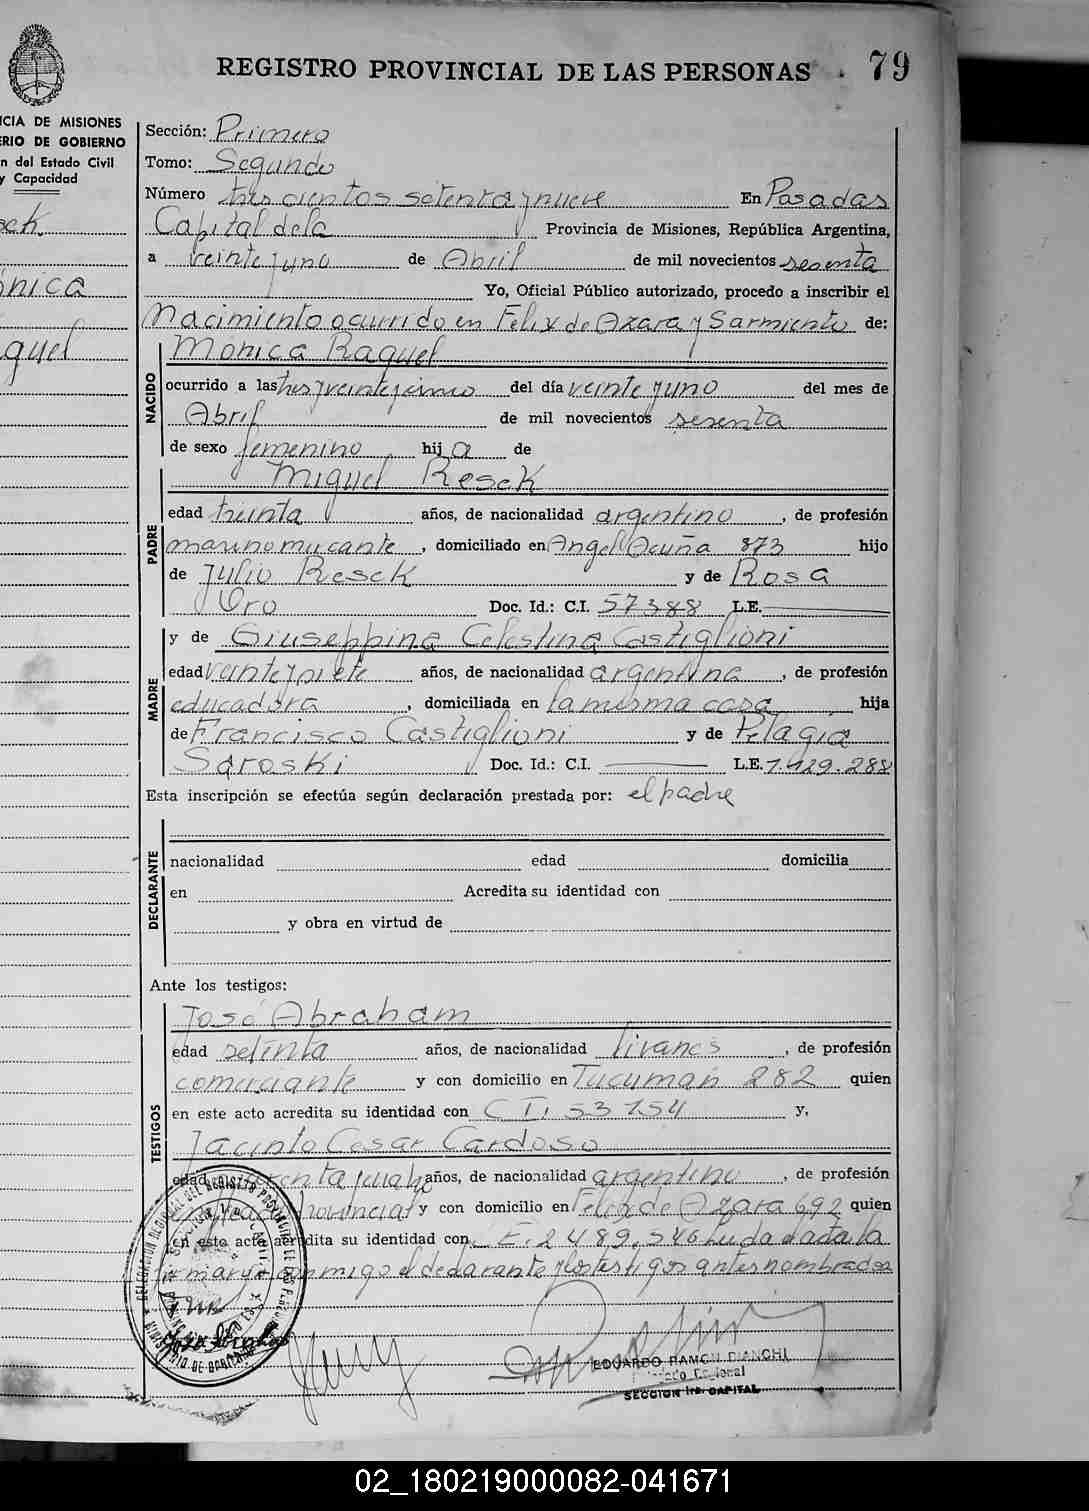 REGISTRO PROVINCIAL DE LAS PERSONAS 79
CIA DE MISIONES
ERIO DE GOBIERNO
n del Estado Civil
y Capacidad
sek
ónica
quel
Sección: Primera
Tomo: Segundo
Número trescientos setenta y nueve En Posadas
Capital de la Provincia de Misiones, República Argentina,
a veinte y uno de Abril de mil novecientos sesenta
Yo, Oficial Público autorizado, procedo a inscribir el
Nacimiento ocurrido en Felix de Azara y Sarmiento de:
Mónica Raquel
NACIDO
ocurrido a las tres y veinte y cinco del día veinte y uno del mes de
Abril de mil novecientos sesenta
de sexo femenino hija de
Miguel Resek
PADRE
edad treinta años, de nacionalidad argentino, de profesión
marino mercante, domiciliado en Angel Acuña 873 hijo
de Julio Resek y de Rosa
Oro Doc. Id.: C.I. 57388 L.E.
y de Giuseppina Celestina Castiglioni
MADRE
edad veinte y siete años, de nacionalidad argentina, de profesión
educadora, domiciliada en la misma casa hija
de Francisco Castiglioni y de Pelagia
Saroski Doc. Id.: C.I. L.E. 1.429.288
Esta inscripción se efectúa según declaración prestada por: el padre
DECLARANTE
nacionalidad edad domicilia
en Acredita su identidad con
y obra en virtud de
Ante los testigos:
José Abraham
TESTIGOS
edad setenta años, de nacionalidad livanes, de profesión
comerciante y con domicilio en Tucumán 282 quien
en este acto acredita su identidad con C I. 53154 y,
Jacinto Cesar Cardoso
edad años, de nacionalidad argentino, de profesión
provincial y con domicilio en Felix de Azara 692 quien
en este acto acredita su identidad con L.E. 2489.546 Leida el acta la
firman conmigo el declarante y los testigos antes nombrados
EDUARDO RAMON BIANCHI
SECCION 1ra. CAPITAL
02_180219000082-041671